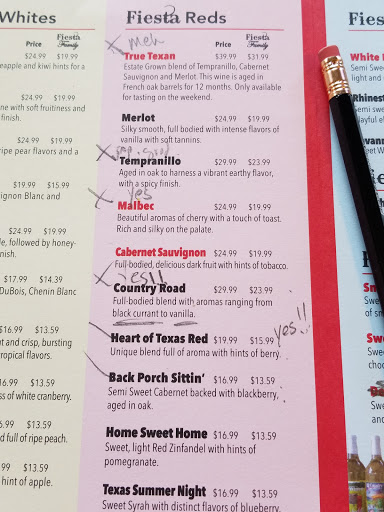 Whites
Price Fiesta Family
$24.99 $19.99
eapple and kiwi hints for a
$24.99 $19.99
ne with soft fruitiness and
finish.
$24.99 $19.99
ripe pear flavors and a
$19.99 $15.99
ignon Blanc and
$24.99 $19.99
le, followed by honey-
nish.
$17.99 $14.39
DuBois, Chenin Blanc
$16.99 $13.59
t and crisp, bursting
ropical flavors.
6.99 $13.59
s of white cranberry.
.99 $13.59
d full of ripe peach.
99 $13.59
hint of apple.
Fiesta Reds
Price Fiesta Family
X meh
True Texan $39.99 $31.99
Estate Grown blend of Tempranillo, Cabernet
Sauvignon and Merlot. This wine is aired in
French oak barrels for 12 months. Only available
for tasting on the weekend.
Merlot $24.99 $19.99
Silky smooth, full bodied with intense flavors of
vanilla with soft tannins.
X
Tempranillo $29.99 $23.99
Aged in oak to harness a vibrant earthy flavor,
with a spicy finish.
X yes
Malbec $24.99 $19.99
Beautiful aromas of cherry with a touch of toast.
Rich and silky on the palate.
Cabernet Sauvignon $24.99 $19.99
Full-bodied, delicious dark fruit with hints of tobacco.
X yes!!
Country Road $29.99 $23.99
Full-bodied blend with aromas ranging from
black currant to vanilla.
Heart of Texas Red $19.99 $15.99 yes!!
Unique blend full of aroma with hints of berry.
Back Porch Sittin' $16.99 $13.59
Semi Sweet Cabernet backed with blackberry,
aged in oak.
Home Sweet Home $16.99 $13.59
Sweet, light Red Zinfandel with hints of
pomegranate.
Texas Summer Night $16.99 $13.59
Sweet Syrah with distinct flavors of blueberry.
Fies
White
Semi Swe
light and
Rhines
Sweet
Swe
Sweet